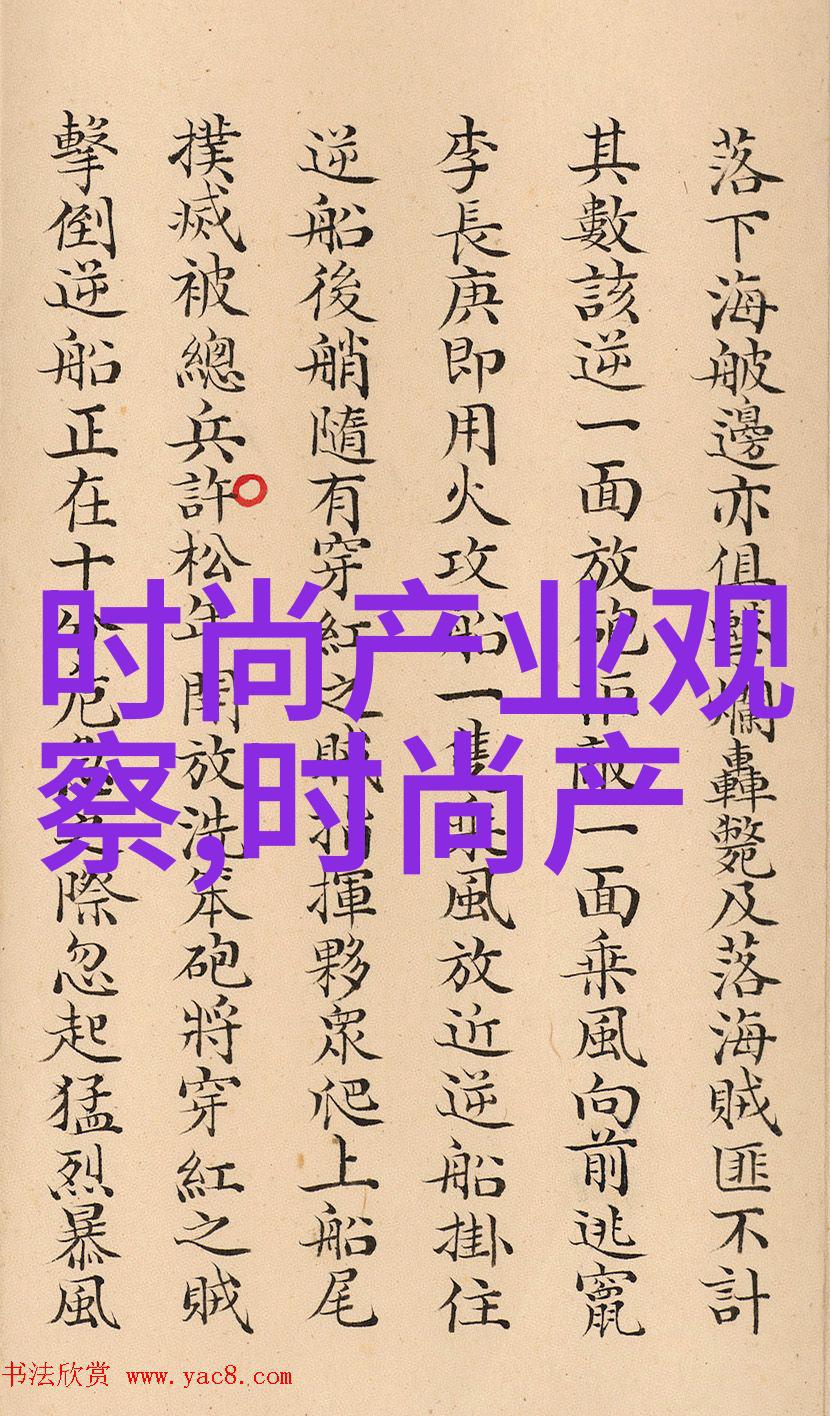 落下海舨邊亦俱擊爛轟斃及落海賊匪不計
其數該逆一面放砲拒敵一面乘風向前逃竄
李長庚即用火攻船一隻乘風放近逆船掛住
逆船後艄隨有穿紅之賊指揮夥眾爬上船尾
撲滅被總兵許松年開放洗笨砲將穿紅之賊
擊倒逆船正在十分危急之際忽起猛烈暴風
时尚产业观
察,时尚产
书法欣赏 www.yac8.com